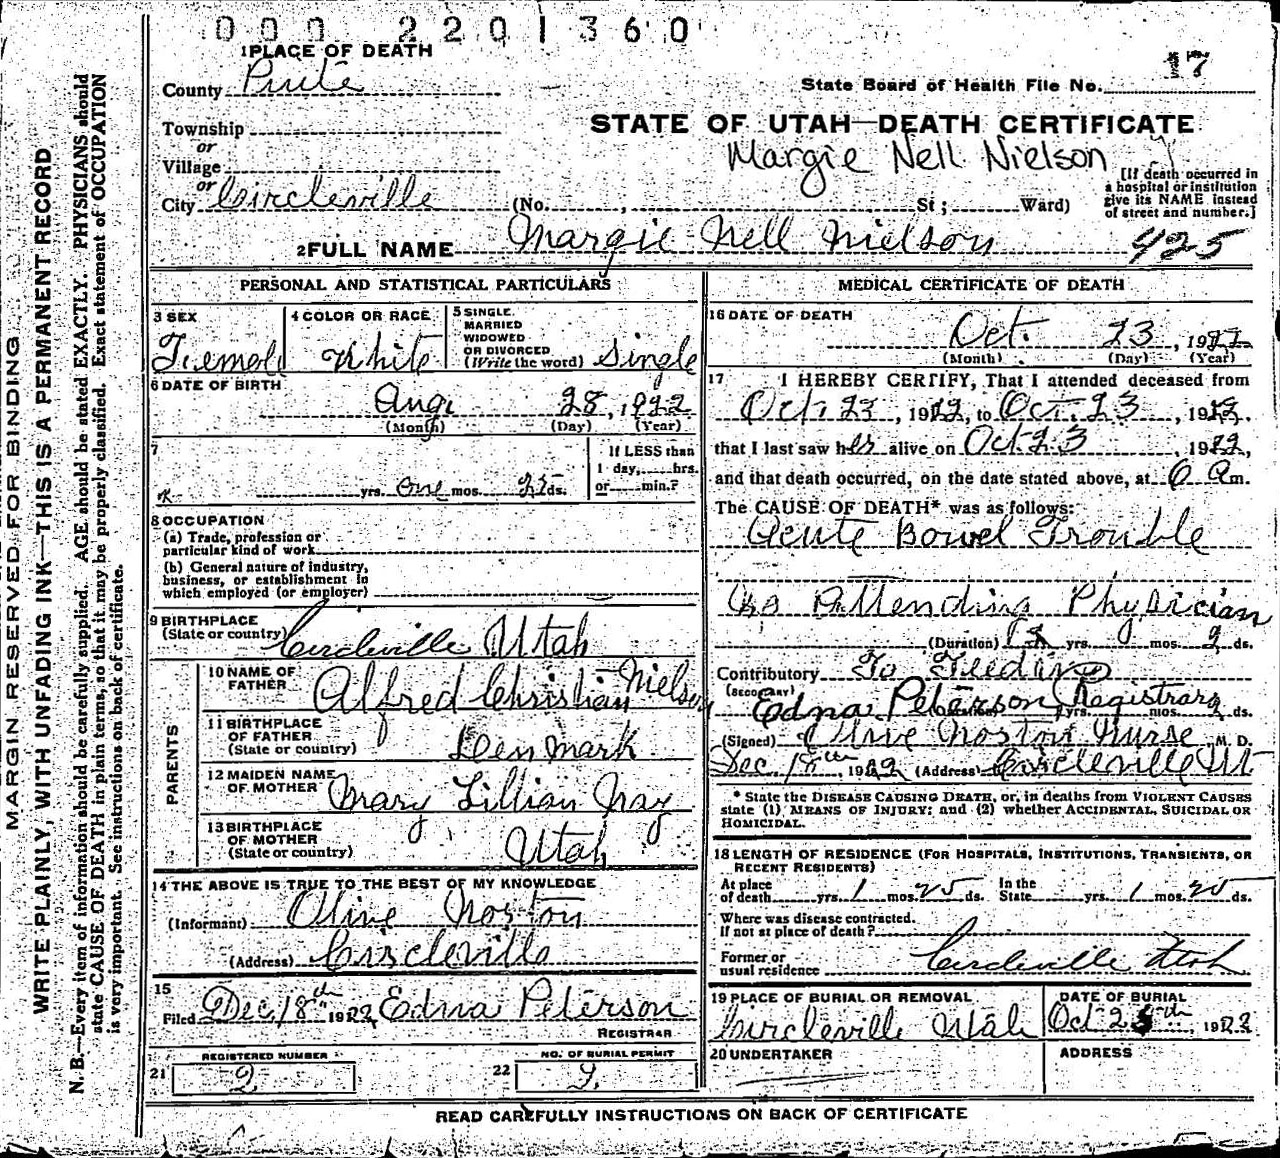 000 2201360
1 PLACE OF DEATH
County Piute
Township
or
Village
or
City Circleville
17
State Board of Health File No.
STATE OF UTAH—DEATH CERTIFICATE
Margie Nell Nielson
(No. , St; Ward)
[If death occurred in
a hospital or institution
give its NAME instead
of street and number.]
2 FULL NAME Margie Nell Nielson
425
PERSONAL AND STATISTICAL PARTICULARS
3 SEX
Femal
4 COLOR OR RACE
White
5 SINGLE.
MARRIED
WIDOWED
OR DIVORCED
(Write the word) Single
6 DATE OF BIRTH
Aug. 28, 1922
(Month) (Day) (Year)
7
yrs. one mos. 25 ds.
If LESS than
1 day, hrs.
or min.?
8 OCCUPATION
(a) Trade, profession or
particular kind of work
(b) General nature of industry,
business, or establishment in
which employed (or employer)
9 BIRTHPLACE
(State or country) Circleville Utah
PARENTS
10 NAME OF
FATHER Alfred Christian Nielson
11 BIRTHPLACE
OF FATHER
(State or country) Denmark
12 MAIDEN NAME
OF MOTHER Mary Lillian Nay
13 BIRTHPLACE
OF MOTHER
(State or country) Utah
14 THE ABOVE IS TRUE TO THE BEST OF MY KNOWLEDGE
(Informant) Olive Norton
(Address) Circleville
15
Filed Dec. 18th 1922 Edna Peterson
REGISTRAR
REGISTERED NUMBER
21 2
NO. OF BURIAL PERMIT
22
MEDICAL CERTIFICATE OF DEATH
16 DATE OF DEATH
Oct. 23, 1922
(Month) (Day) (Year)
17 I HEREBY CERTIFY, That I attended deceased from
Oct. 23, 1922, to Oct. 23, 1922,
that I last saw her alive on Oct 23, 1922,
and that death occurred, on the date stated above, at am.
The CAUSE OF DEATH* was as follows:
Acute Bowel Trouble
No Attending Physician
(Duration) yrs. mos. 2 ds.
Contributory To Feeding
(SECONDARY)
Edna Peterson Registrar
yrs. mos. ds.
(Signed) Olive Norton Nurse M. D.
Dec. 18th, 1922 (Address) Circleville Ut
* State the DISEASE CAUSING DEATH, or, in deaths from VIOLENT CAUSES
state (1) MEANS OF INJURY; and (2) whether ACCIDENTAL, SUICIDAL OR
HOMICIDAL.
18 LENGTH OF RESIDENCE (FOR HOSPITALS, INSTITUTIONS, TRANSIENTS, OR
RECENT RESIDENTS)
At place
of death yrs. 1 mos. 25 ds.
In the
State yrs. 1 mos. 25 ds.
Where was disease contracted.
If not at place of death?
Former or
usual residence Circleville Utah
19 PLACE OF BURIAL OR REMOVAL
Circleville Utah
DATE OF BURIAL
Oct 25th, 1922
20 UNDERTAKER
ADDRESS
READ CAREFULLY INSTRUCTIONS ON BACK OF CERTIFICATE
MARGIN RESERVED FOR BINDING
WRITE PLAINLY, WITH UNFADING INK—THIS IS A PERMANENT RECORD
N. B.—Every item of information should be carefully supplied. AGE should be stated EXACTLY. PHYSICIANS should
state CAUSE OF DEATH in plain terms, so that it may be properly classified. Exact statement of OCCUPATION
is very important. See instructions on back of certificate.